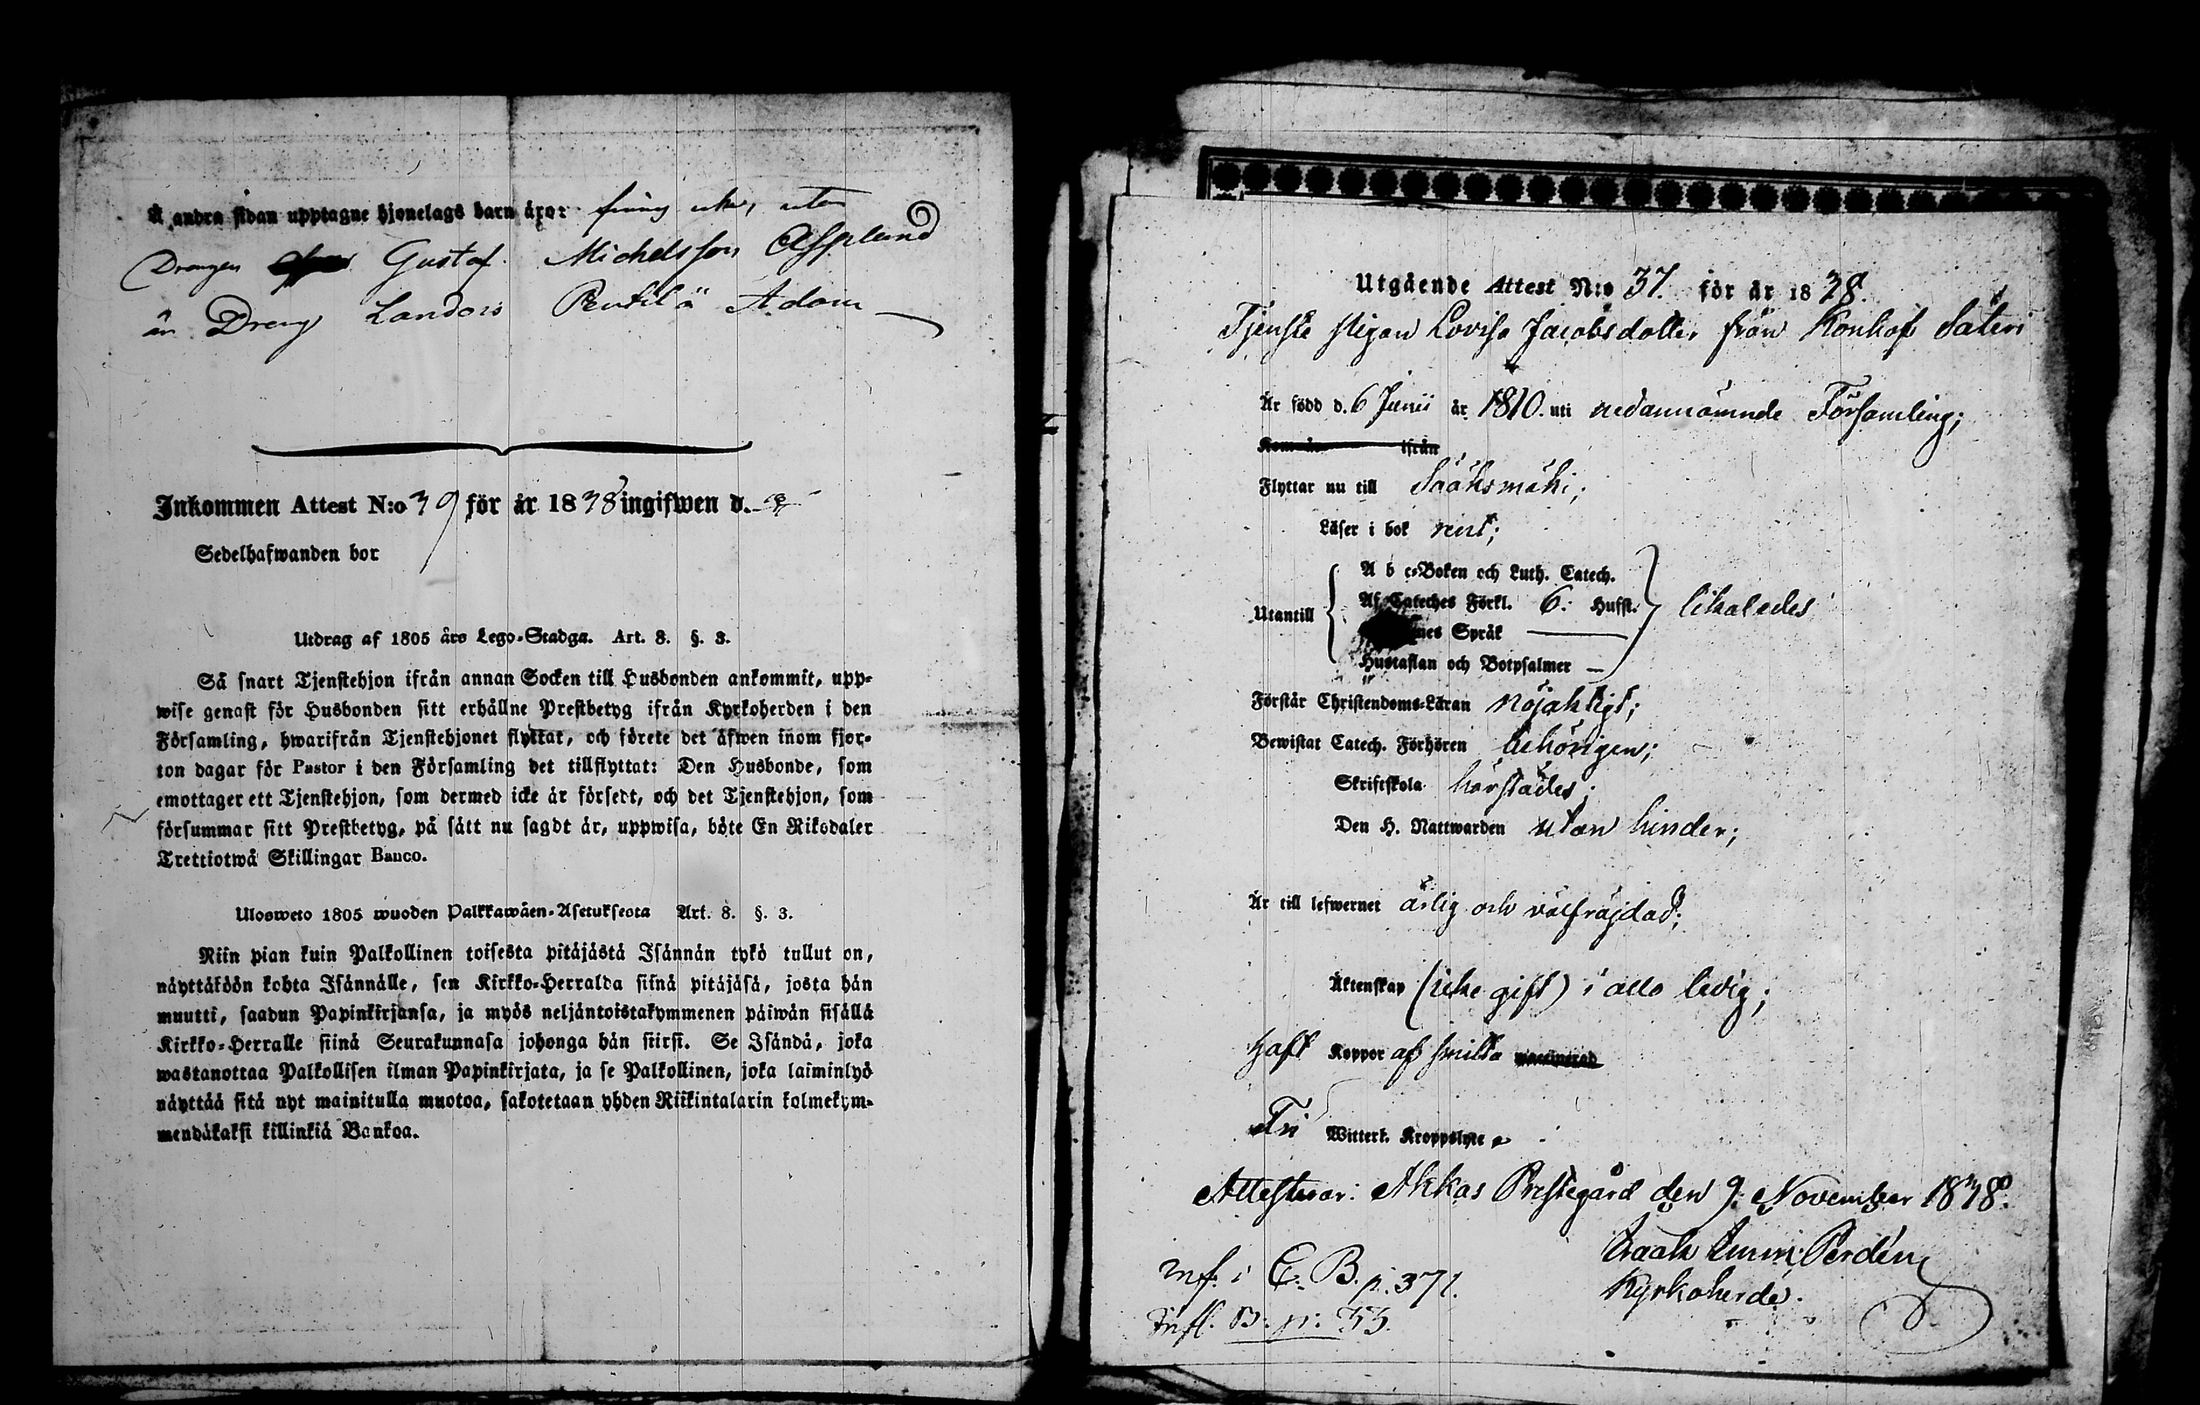 Å andra sidan upptagne hjonelags barn äro: finns icke, utan
Drängen Gustaf Michelsson Asplund
än Dräng Landors Penttilä Adam
Inkommen Attest N:o 39 för år 1838 ingifwen d.
Sedelhafwanden bor
Utdrag af 1805 års Lego-Stadga. Art. 8. §. 3.
Så snart Tjenstehjon ifrån annan Socken till Husbonden ankommit, upp-
wise genast för Husbonden sitt erhållne Prestbetyg ifrån Kyrkoherden i den
Församling, hwarifrån Tjenstehjonet flyttat, och förete det äfwen inom fjor-
ton dagar för Pastor i den Församling det tillflyttat: Den Husbonde, som
emottager ett Tjenstehjon, som dermed icke är försedt, och det Tjenstehjon, som
försummar sitt Prestbetyg, på sätt nu sagdt är, uppwisa, böte En Riksdaler
Trettiotwå Skillingar Banco.
Ulosweto 1805 wuoden Palkkawäen-Asetuksesta Art. 8. §. 3.
Niin pian kuin Palkollinen toisesta pitäjästä Isännän tykö tullut on,
näyttäköön kohta Isännälle, sen Kirkko-Herralda siinä pitäjäsä, josta hän
muutti, saadun Papinkirjansa, ja myös neljäntoistakymmenen päiwän sisällä
Kirkko-Herralle siinä Seurakunnasa johonga hän siirsi. Se Isändä, joka
wastanottaa Palkollisen ilman Papinkirjata, ja se Palkollinen, joka laiminlyö
näyttää sitä nyt mainitulla muotoa, sakotetaan yhden Riikintalarin kolmekym-
mendäkaksi killinkiä Bankoa.
Utgående Attest N:o 37. för år 1838.
Tjenste pigan Lovisa Jacobsdotter från Konhof Säteri
Är född d. 6 Junii år 1810. uti nedannämnde Församling;
Kommen ifrån
Flyttar nu till Sääksmäki;
Läser i bok rent;
A b c-Boken och Luth. Catech.
Utantill Af Cateches Förkl. 6: Hufst. likaledes
nes Språk —
Hustaflan och Botpsalmer —
Förstår Christendoms-Läran nöjaktigt;
Bewistat Catech. Förhören behörigen;
Skriftskola härstädes;
Den H. Nattwarden utan hinder;
Är till lefwernet ärlig och välfräjdad;
Äktenskap (icke gift) i allo ledig;
Haft Koppor af smitta vaccinerad
Fri Witterl. Kroppslyte
Attesterar: Akkas Prestegård den 9: November 1838.
Perdén
Kyrkoherde.
Inf. i C. B. p. 371.
Infl. B. p. 33.